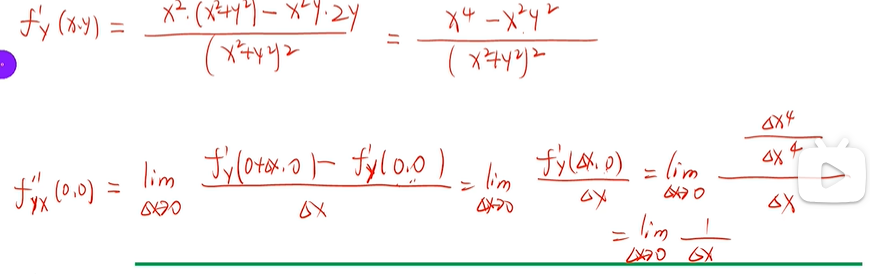 f'y(x,y) = x²·(x²+y²) - x²y·2y / (x²+y²)² = x⁴ - x²y² / (x²+y²)²
f''yx(0,0) = lim Δx→0 f'y(0+Δx,0) - f'y(0,0) / Δx = lim Δx→0 f'y(Δx,0) / Δx = lim Δx→0 Δx⁴/Δx⁴ / Δx
= lim Δx→0 1 / Δx